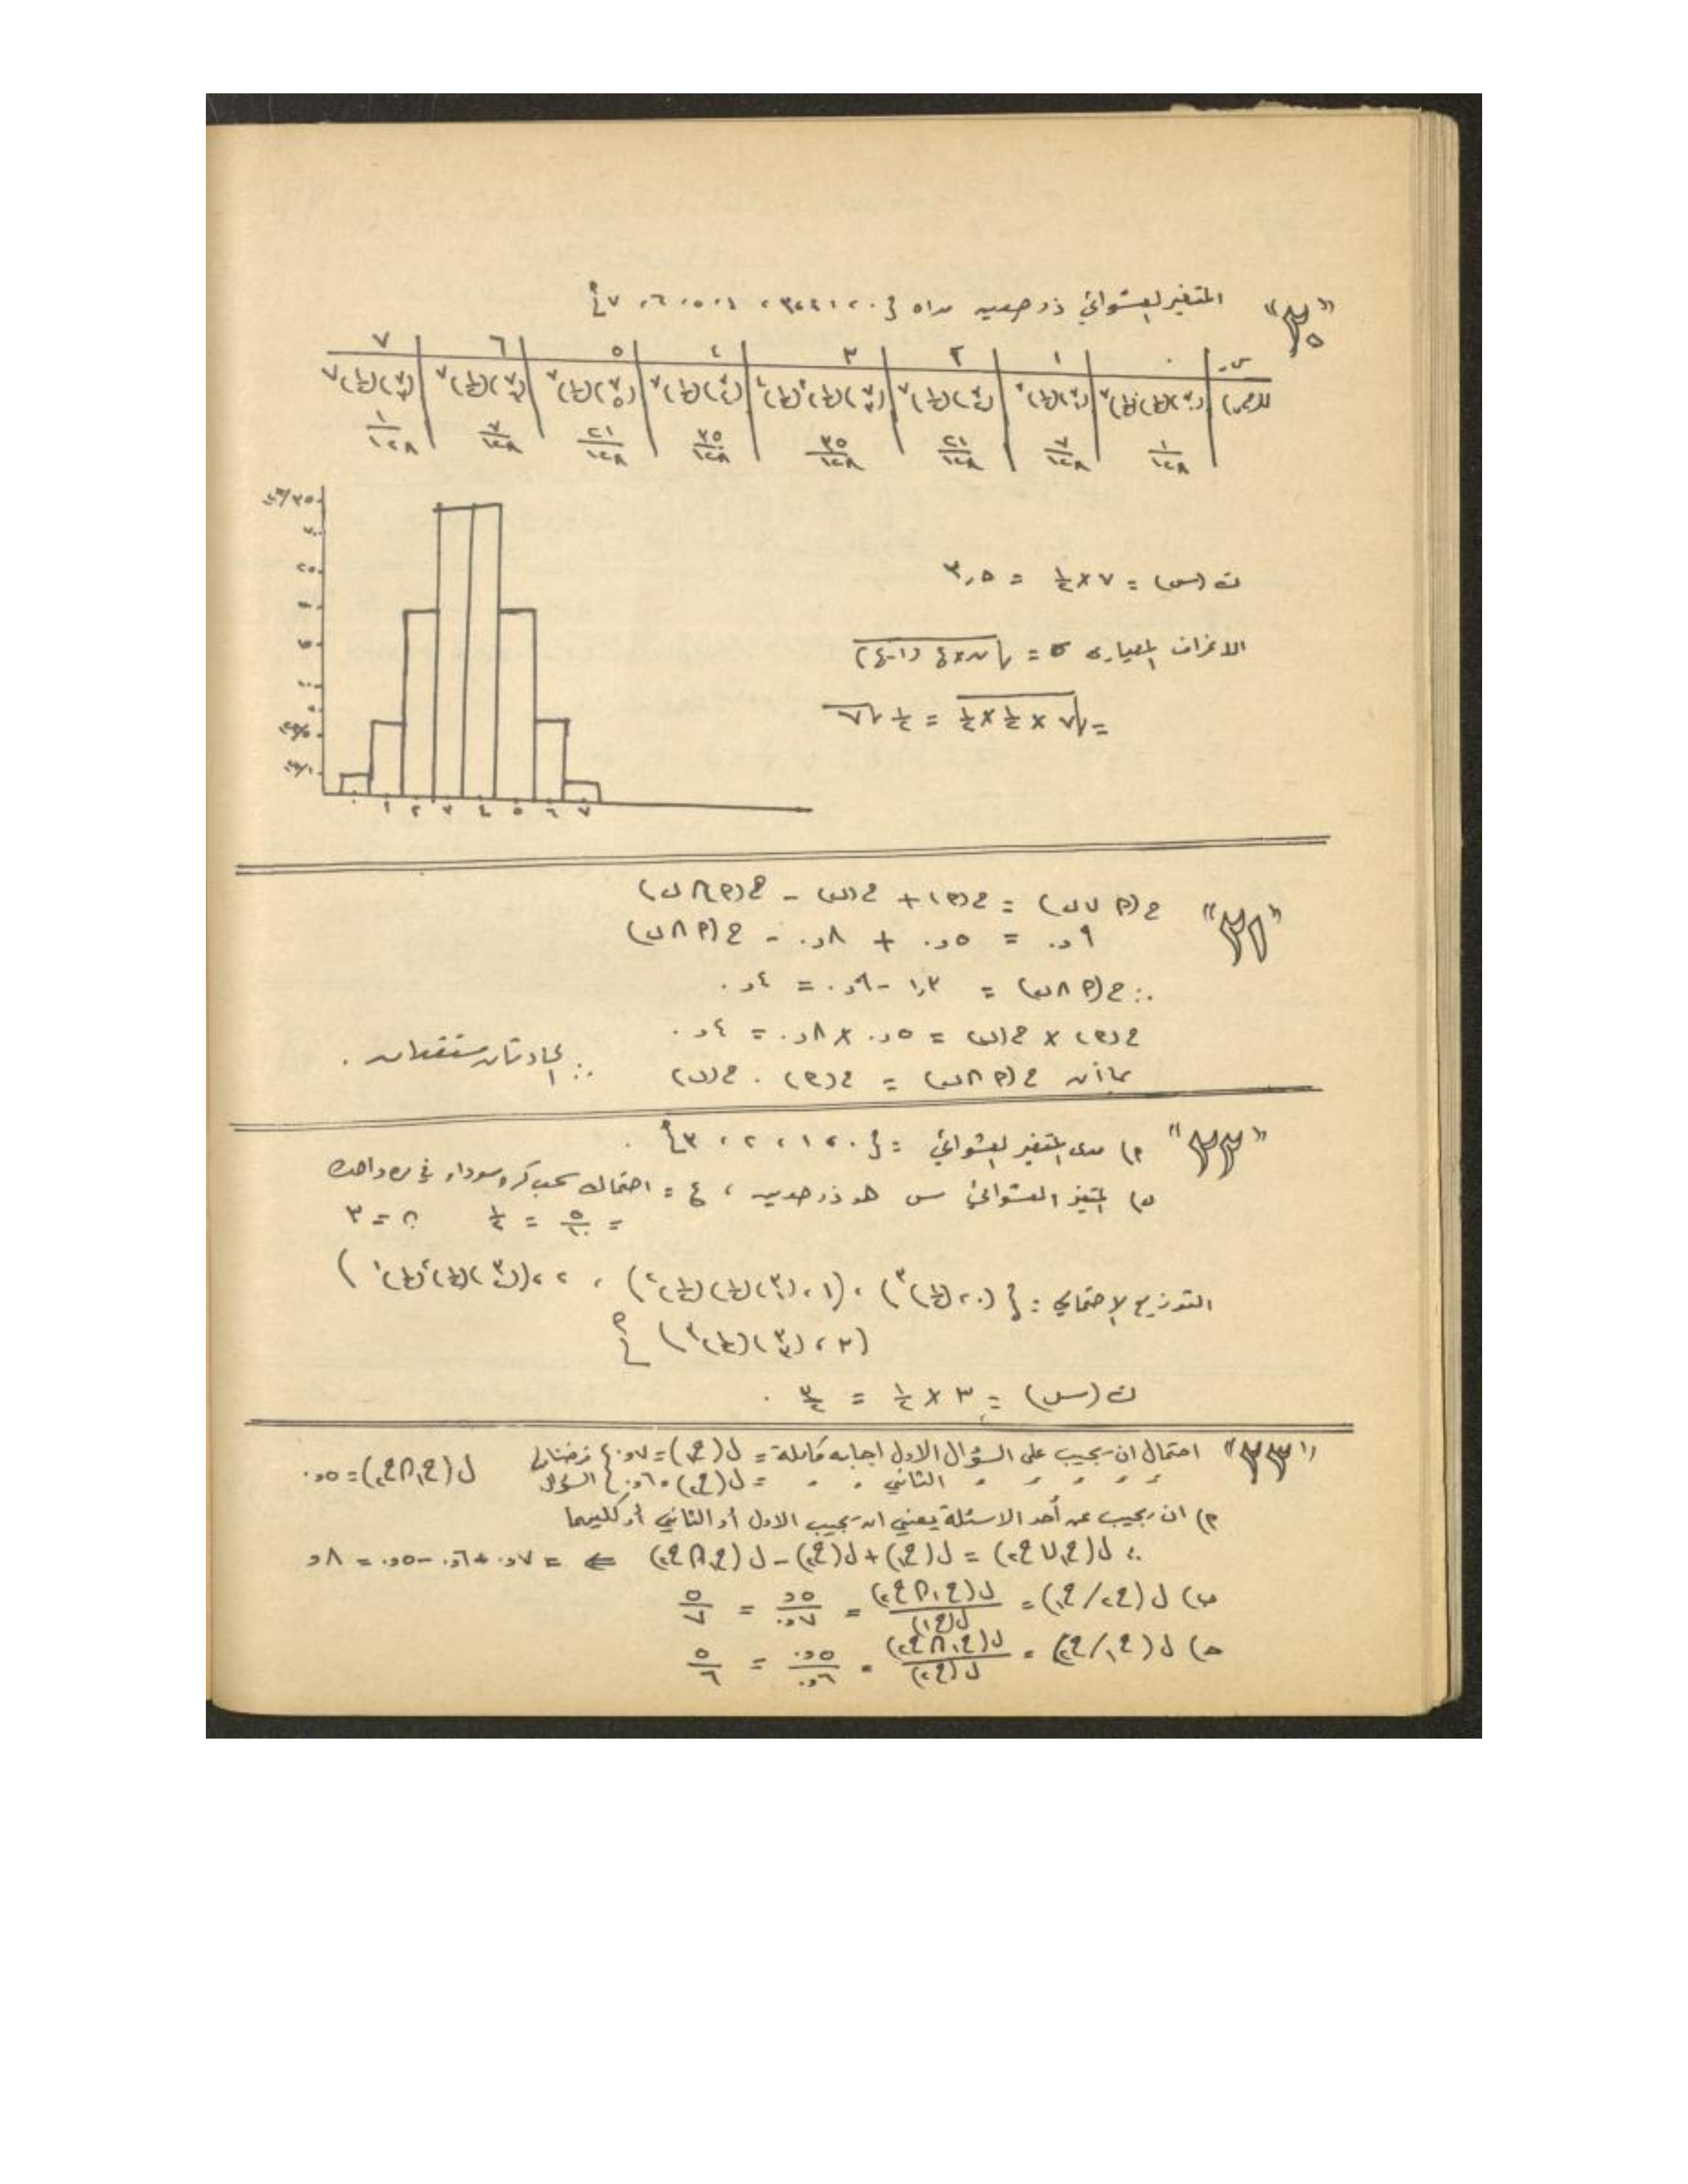 "٣٠" المتغير العشوائي ذو حدين مداه {٠، ١، ٢، ٣، ٤، ٥، ٦، ٧}
س ٠ ١ ٢ ٣ ٤ ٥ ٦ ٧
ل(س) (٧ ٠)(١/٢)٠(١/٢)٧ (٧ ١)(١/٢)٧ (٧ ٢)(١/٢)٧ (٧ ٣)(١/٢)٣(١/٢)٤ (٧ ٤)(١/٢)٧ (٧ ٥)(١/٢)٧ (٧ ٦)(١/٢)٧ (٧ ٧)(١/٢)٧
١/١٢٨ ٧/١٢٨ ٢١/١٢٨ ٣٥/١٢٨ ٣٥/١٢٨ ٢١/١٢٨ ٧/١٢٨ ١/١٢٨
ت (س) = ٧ × ١/٢ = ٣,٥
الانحراف المعياري σ = √(ن × ع (١-ع))
= √(٧ × ١/٢ × ١/٢) = ١/٢ √٧
٠ ١ ٢ ٣ ٤ ٥ ٦ ٧
"٣١" ح(P ∪ ب) = ح(P) + ح(ب) - ح(P ∩ ب)
٠,٩ = ٠,٥ + ٠,٨ - ح(P ∩ ب)
∴ ح(P ∩ ب) = ١,٣ - ٠,٩ = ٠,٤
ح(P) × ح(ب) = ٠,٥ × ٠,٨ = ٠,٤
بما أن ح(P ∩ ب) = ح(P) . ح(ب) ∴ الحادثتان مستقلتان .
"٣٢" P) مدى المتغير العشوائي = {٠، ١، ٢، ٣} .
ب) المتغير العشوائي س هو ذو حدين ، ع = احتمال سحب كره سوداء في مره واحده
= ٥/١٠ = ١/٢ ن = ٣
التوزيع الاحتمالي : {(٠، (١/٢)٣) ، (١، (٣ ١)(١/٢)(١/٢)٢) ، (٢، (٣ ٢)(١/٢)٢(١/٢)١)
(٣، (٣ ٣)(١/٢)٣)}
ت (س) = ٣ × ١/٢ = ٣/٢ .
"٣٣" احتمال ان يجيب على السؤال الاول اجابه كامله = ل(ح١) = ٠,٧ } ل(ح١ ∩ ح٢) = ٠,٥
الثاني = ل(ح٢) = ٠,٦ } السؤال
P) ان يجيب عن أحد الاسئلة يعني ان يجيب الاول أو الثاني أو كليهما
∴ ل(ح١ ∪ ح٢) = ل(ح١) + ل(ح٢) - ل(ح١ ∩ ح٢) ⇐ = ٠,٧ + ٠,٦ - ٠,٥ = ٨,
ب) ل(ح٢/ح١) = ل(ح١ ∩ ح٢)/ل(ح١) = ٥,/٠,٧ = ٥/٧
ج) ل(ح١/ح٢) = ل(ح١ ∩ ح٢)/ل(ح٢) = ٠,٥/٠,٦ = ٥/٦